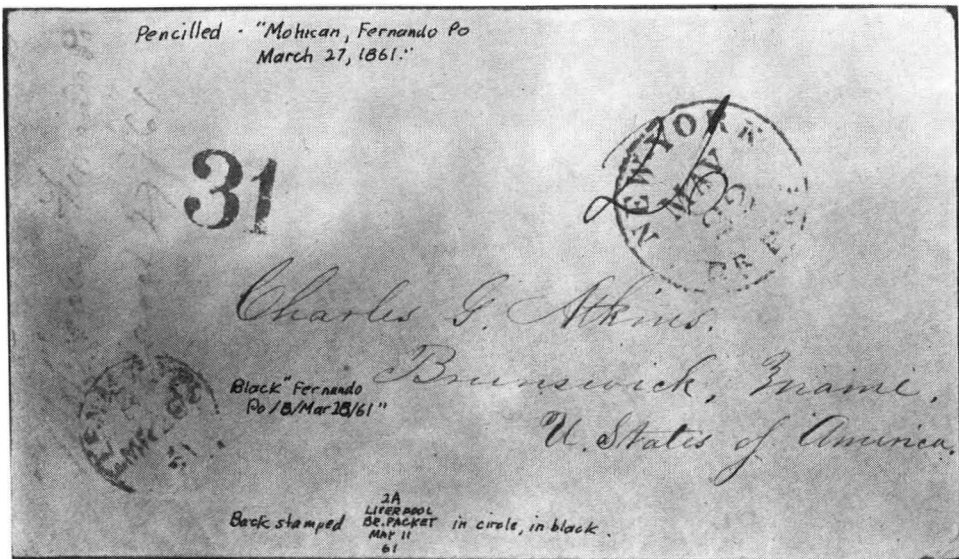 Pencilled - "Mohican, Fernando Po
March 27, 1861."
31
NEW YORK
MAY
BR PKT
Charles G. Atkins.
Brunswick, Maine.
U. States of America.
Black "Fernando
Po/B/Mar 28/61"
Back stamped 2A LIVERPOOL BR. PACKET MAY 11 61 in circle, in black.